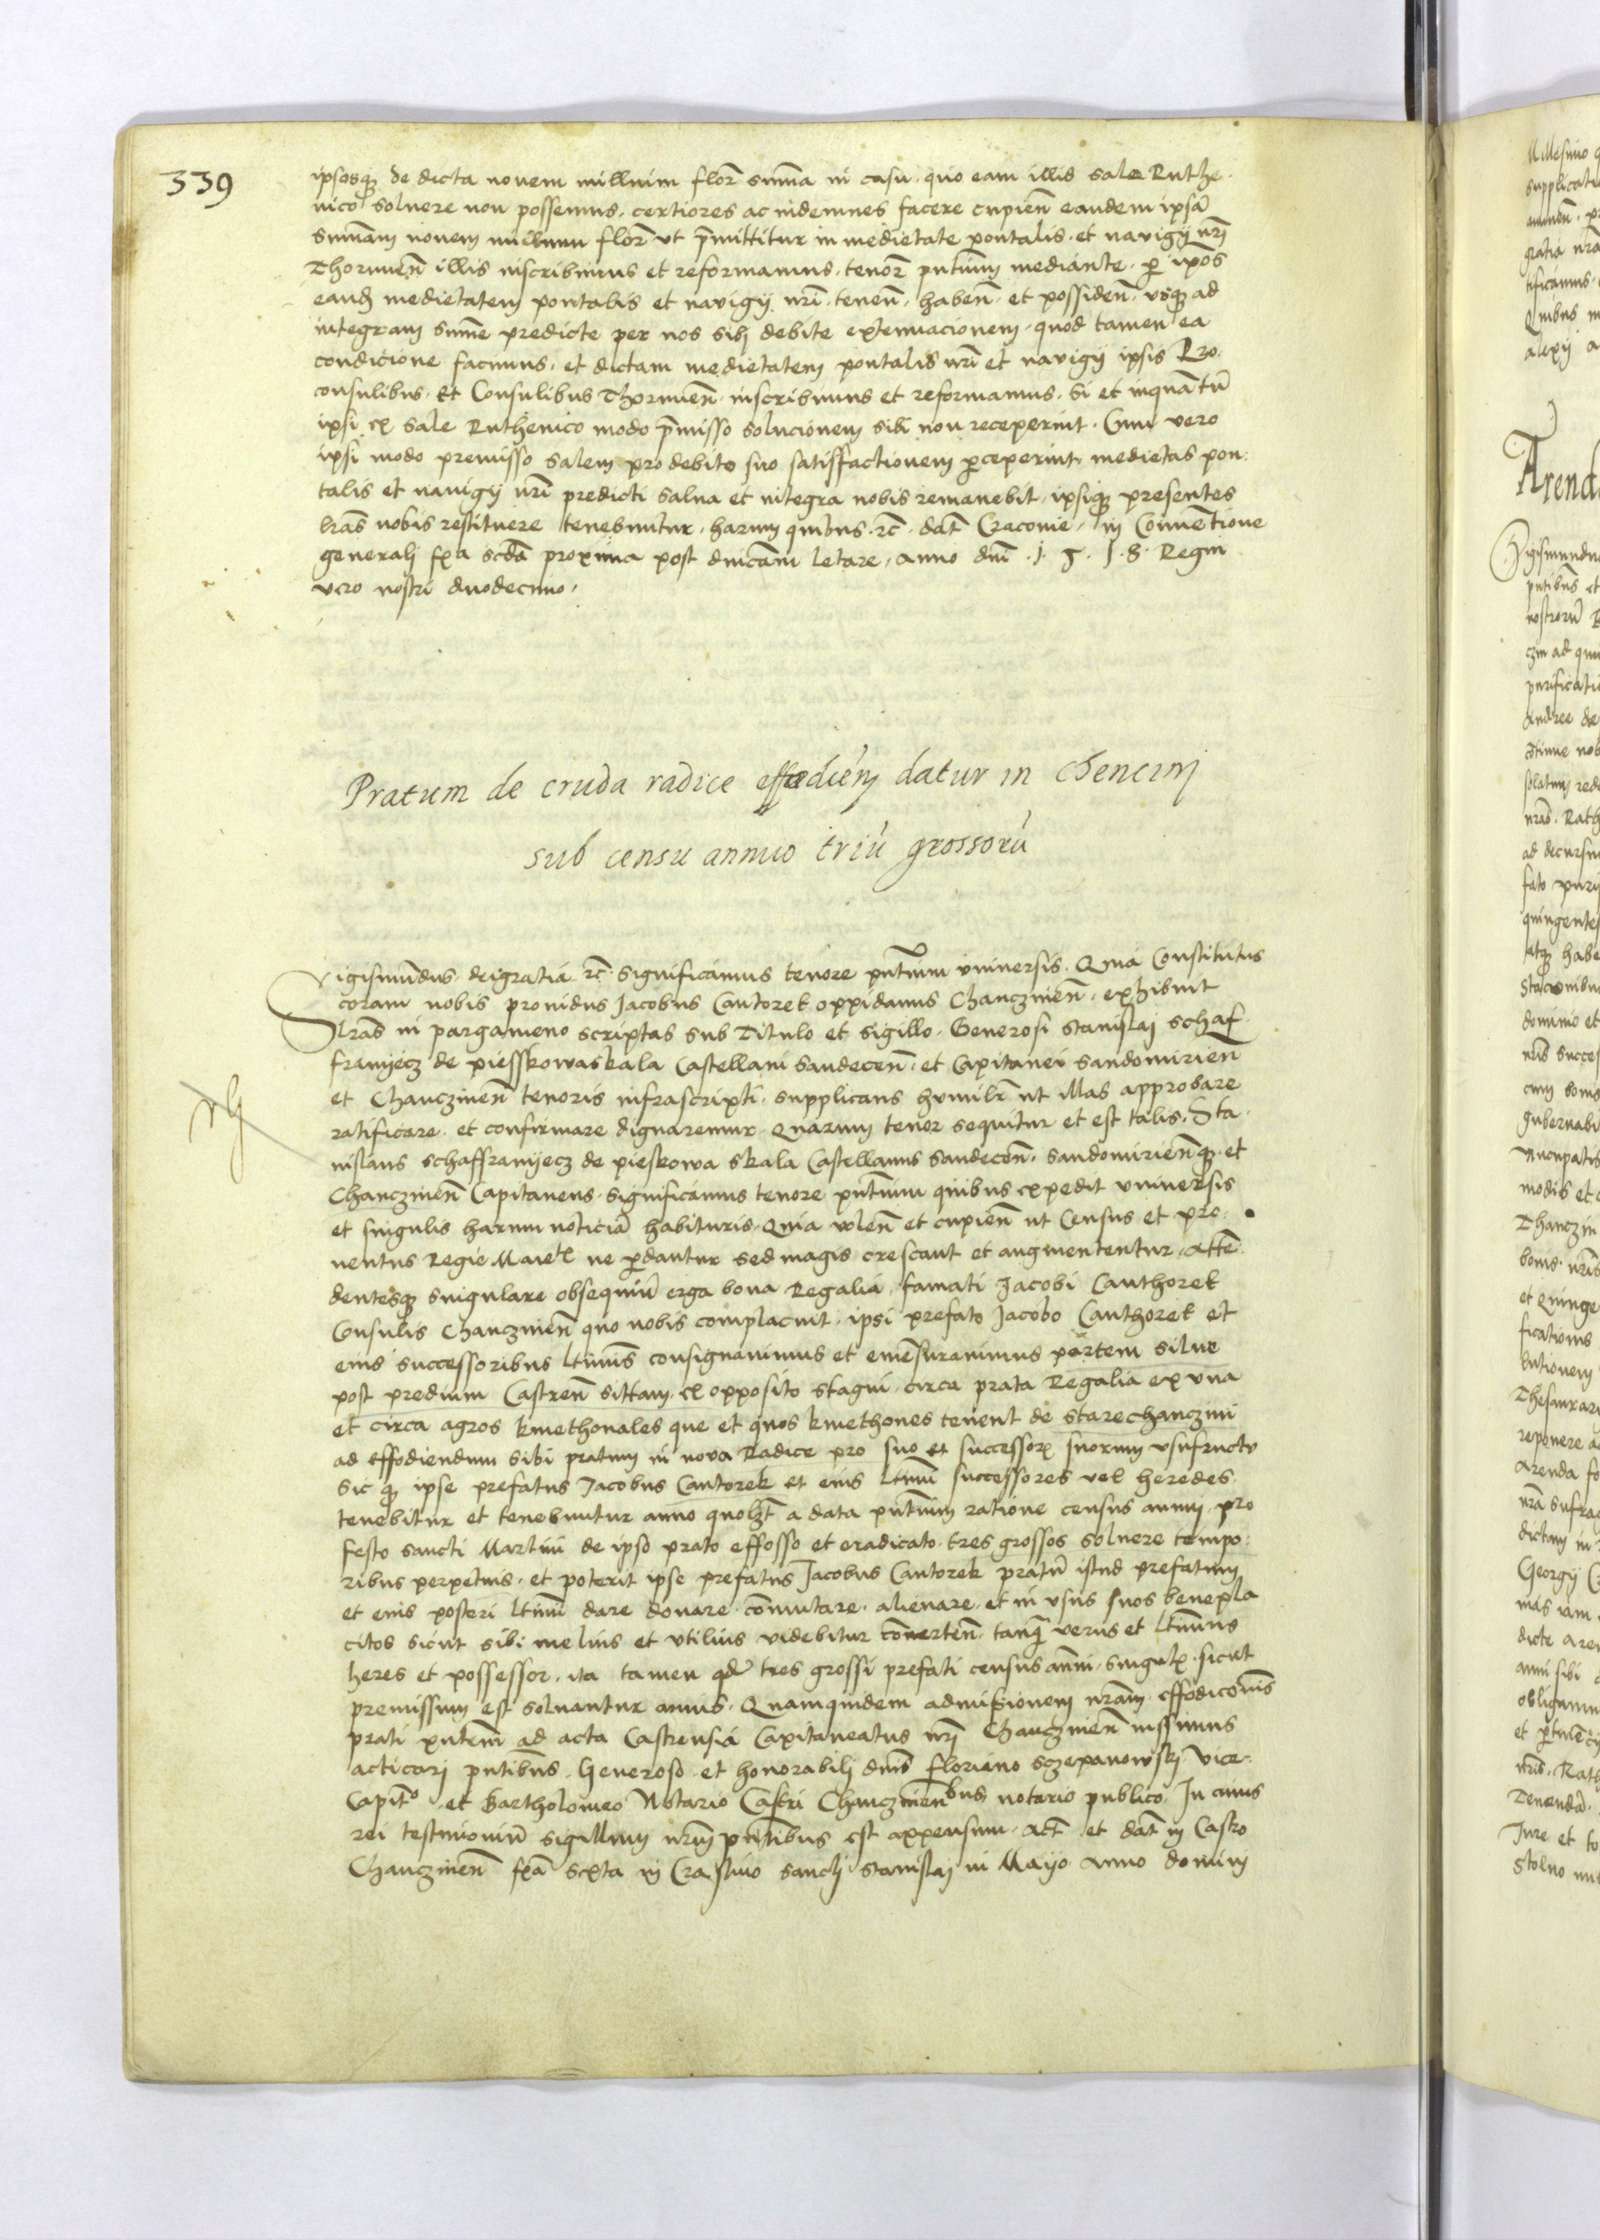 339
ipsosq̃ de dicta novem millium flor̃ sum̃a in casu quo eam illis sale Ruthe
nico solvere non possemus, certiores ac indemnes facere cupien̄ eandem ipsā
sum̄am novem millium flor̃ vt p̄mittitur in medietate pontalis et navigij nr̄i
Thorunien̄ illis inscribimus et reformamus tenor̄ pn̄tium mediante p̱ ip̄os
eand̃ medietatem pontalis et navigij nr̄i tenen̄ haben̄ et possiden̄ vsq̃ ad
integram sum̄e predicte per nos sibi debite extenuacionem, quod tamen ea
condicione facimus, et dictam medietatem pontalis nr̄i et navigij ipsis Pro
consulibus et Consulibus Thorunien̄ inscribimus et reformamus, si et inquantū
ipsi ex sale Ruthenico modo p̄misso solucionem sibi non receperint. Cum vero
ipsi modo premisso salem pro debito suo satisffactionem p̱ceperint, medietas pon
talis et navigij nr̄i predicti salva et integra nobis remanebit, ipsiq̃ presentes
lr̄as nobis restituere tenebuntur, harum quibus rc̄. dat̄ Cracovie in Conventione
generali fr̄ia scd̄a proxima post dn̄icam letare, anno dn̄i .1.5.18. Regni
vero nostri duodecimo.
Pratum de cruda radice effodien̄ datur in Chencini
sub censu annuo triū grossorū
Sigismundus dei gratia rc̄. Significamus tenore pn̄tium vniversis. Quia Constitutus
coram nobis providus Jacobus Cantorek oppidanus Chanczinen̄ exhibuit
lr̄as in pargameno scriptas sub Titulo et Sigillo Generosi Stanislai Schaf
franyecz de piesskowaskala Castellani Sandecen̄ et Capitanei Sandomirien̄
et Chanczinen̄ tenoris infrascripti supplicans humilr̄ ut illas approbare
ratificare et confirmare dignaremur quarum tenor sequitur et est talis. Sta
nislaus schaffranyecz de pieskowa skala Castellanus Sandecen̄. Sandomirien̄q̃ et
Chanczinen̄ Capitaneus Significamus tenore pn̄tium quibus expedit vniversis
et singulis harum noticiā habituris Quia volen̄ et cupien̄ ut Census et pro
ventus Regie Maiet̄ ne p̱dantur sed magis crescant et augmententur, atten̄
dentesq̃ singulare obsequiū erga bona Regalia famati Jacobi Canthorek
Consulis Chanczinen̄ quo nobis complacuit ipsi prefato Jacobo Canthorek et
eius successoribus lt̄imis consignavimus et emēsuravimus partem silve
post predium Castren̄ sittam ex opposito stagni circa prata Regalia ex vna
et circa agros kmethonales que et quos kmethones tenent de starechanczini
ad effodiendum sibi pratum in nova Radice pro suo et successor̄ suorum vsufructu
sic q̃ ipse prefatus Jacobus Cantorek et eius lt̄imi successores vel heredes
tenebitur et tenebuntur anno quolz̄t a data pn̄tium ratione census annui pro
festo sancti Martini de ipso prato effosso et eradicato tres grossos solvere tempo
ribus perpetuis, et poterit ipse prefatus Jacobus Cantorek pratū istud prefatum
et eius posteri lt̄imi dare donare com̄utare alienare et in vsus suos benepla
citos sicut sibi melius et vtilius videbitur converten̄ tanq̃ verus et lt̄imus
heres et possessor, ita tamen qd̄ tres grossi prefati census an̄ui singulr̄ sicut
premissum est solvantur annis. Quamquidem admissionem nr̄am effodicōnis
prati pn̄tem ad acta Castrensia Capitaneatus nr̄i Chanczinen̄ iussimus
acticari pn̄tibus Generoso et honorabili dn̄is Floriano Sczepanowski Vice
Capit̄o et Bartholomeo Notario Castri Chanczinen̄bus notario publico. In cuius
rei testimoniū sigillum nr̄um pn̄tibus est appensum. Act̄ et dat̄ in Castro
Chanczinen̄ fr̄ia sexta in Crastino sancti Stanislai in Maijo Anno domini
Arend
Sigismundu